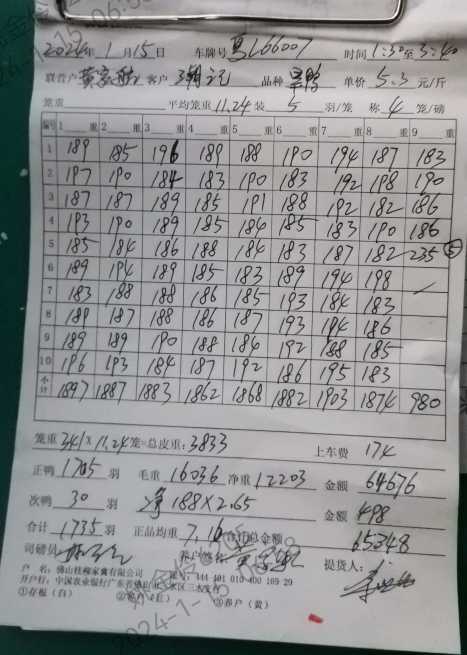 2024年 1月15日 车牌号 L66007 时间 1:30至3:40
联营户 客户 品种 单价 5.3 元/斤
笼重 平均笼重 11.24 装 5 羽/笼 称 4 笼/磅
编号 1 重 2 重 3 重 4 重 5 重 6 重 7 重 8 重 9 重
1 189 185 196 189 188 190 194 187 183
2 197 190 184 183 190 183 192 198 190
3 187 187 189 185 191 188 192 182 186
4 193 190 189 185 184 185 183 190 186
5 185 184 186 188 184 183 187 182 235 ⑤
6 189 194 189 185 183 189 194 198
7 183 188 188 186 185 193 184 183
8 189 187 188 186 187 193 194 186
9 189 189 190 188 184 192 188 185
10 196 193 184 187 192 186 195 183
小计 1897 1887 1883 1862 1868 1882 1903 1874 980
笼重 341 X 11.24 笼=总皮重: 3833 上车费 174
正鸭 1705 羽 毛重 16036 净重 12203 金额 64676
次鸭 30 羽 净 188X2.65 金额 498
合计 1735 羽 正品均重 7.16 合计总金额 65348
司磅员 客户签名 提货人:
户 名: 佛山桂柳家禽有限公司 账号: 444 101 010 400 109 29
开户行: 中国农业银行广东省佛山 三水支行
①存根 (白) ②客户 (红) ③养户 (黄)